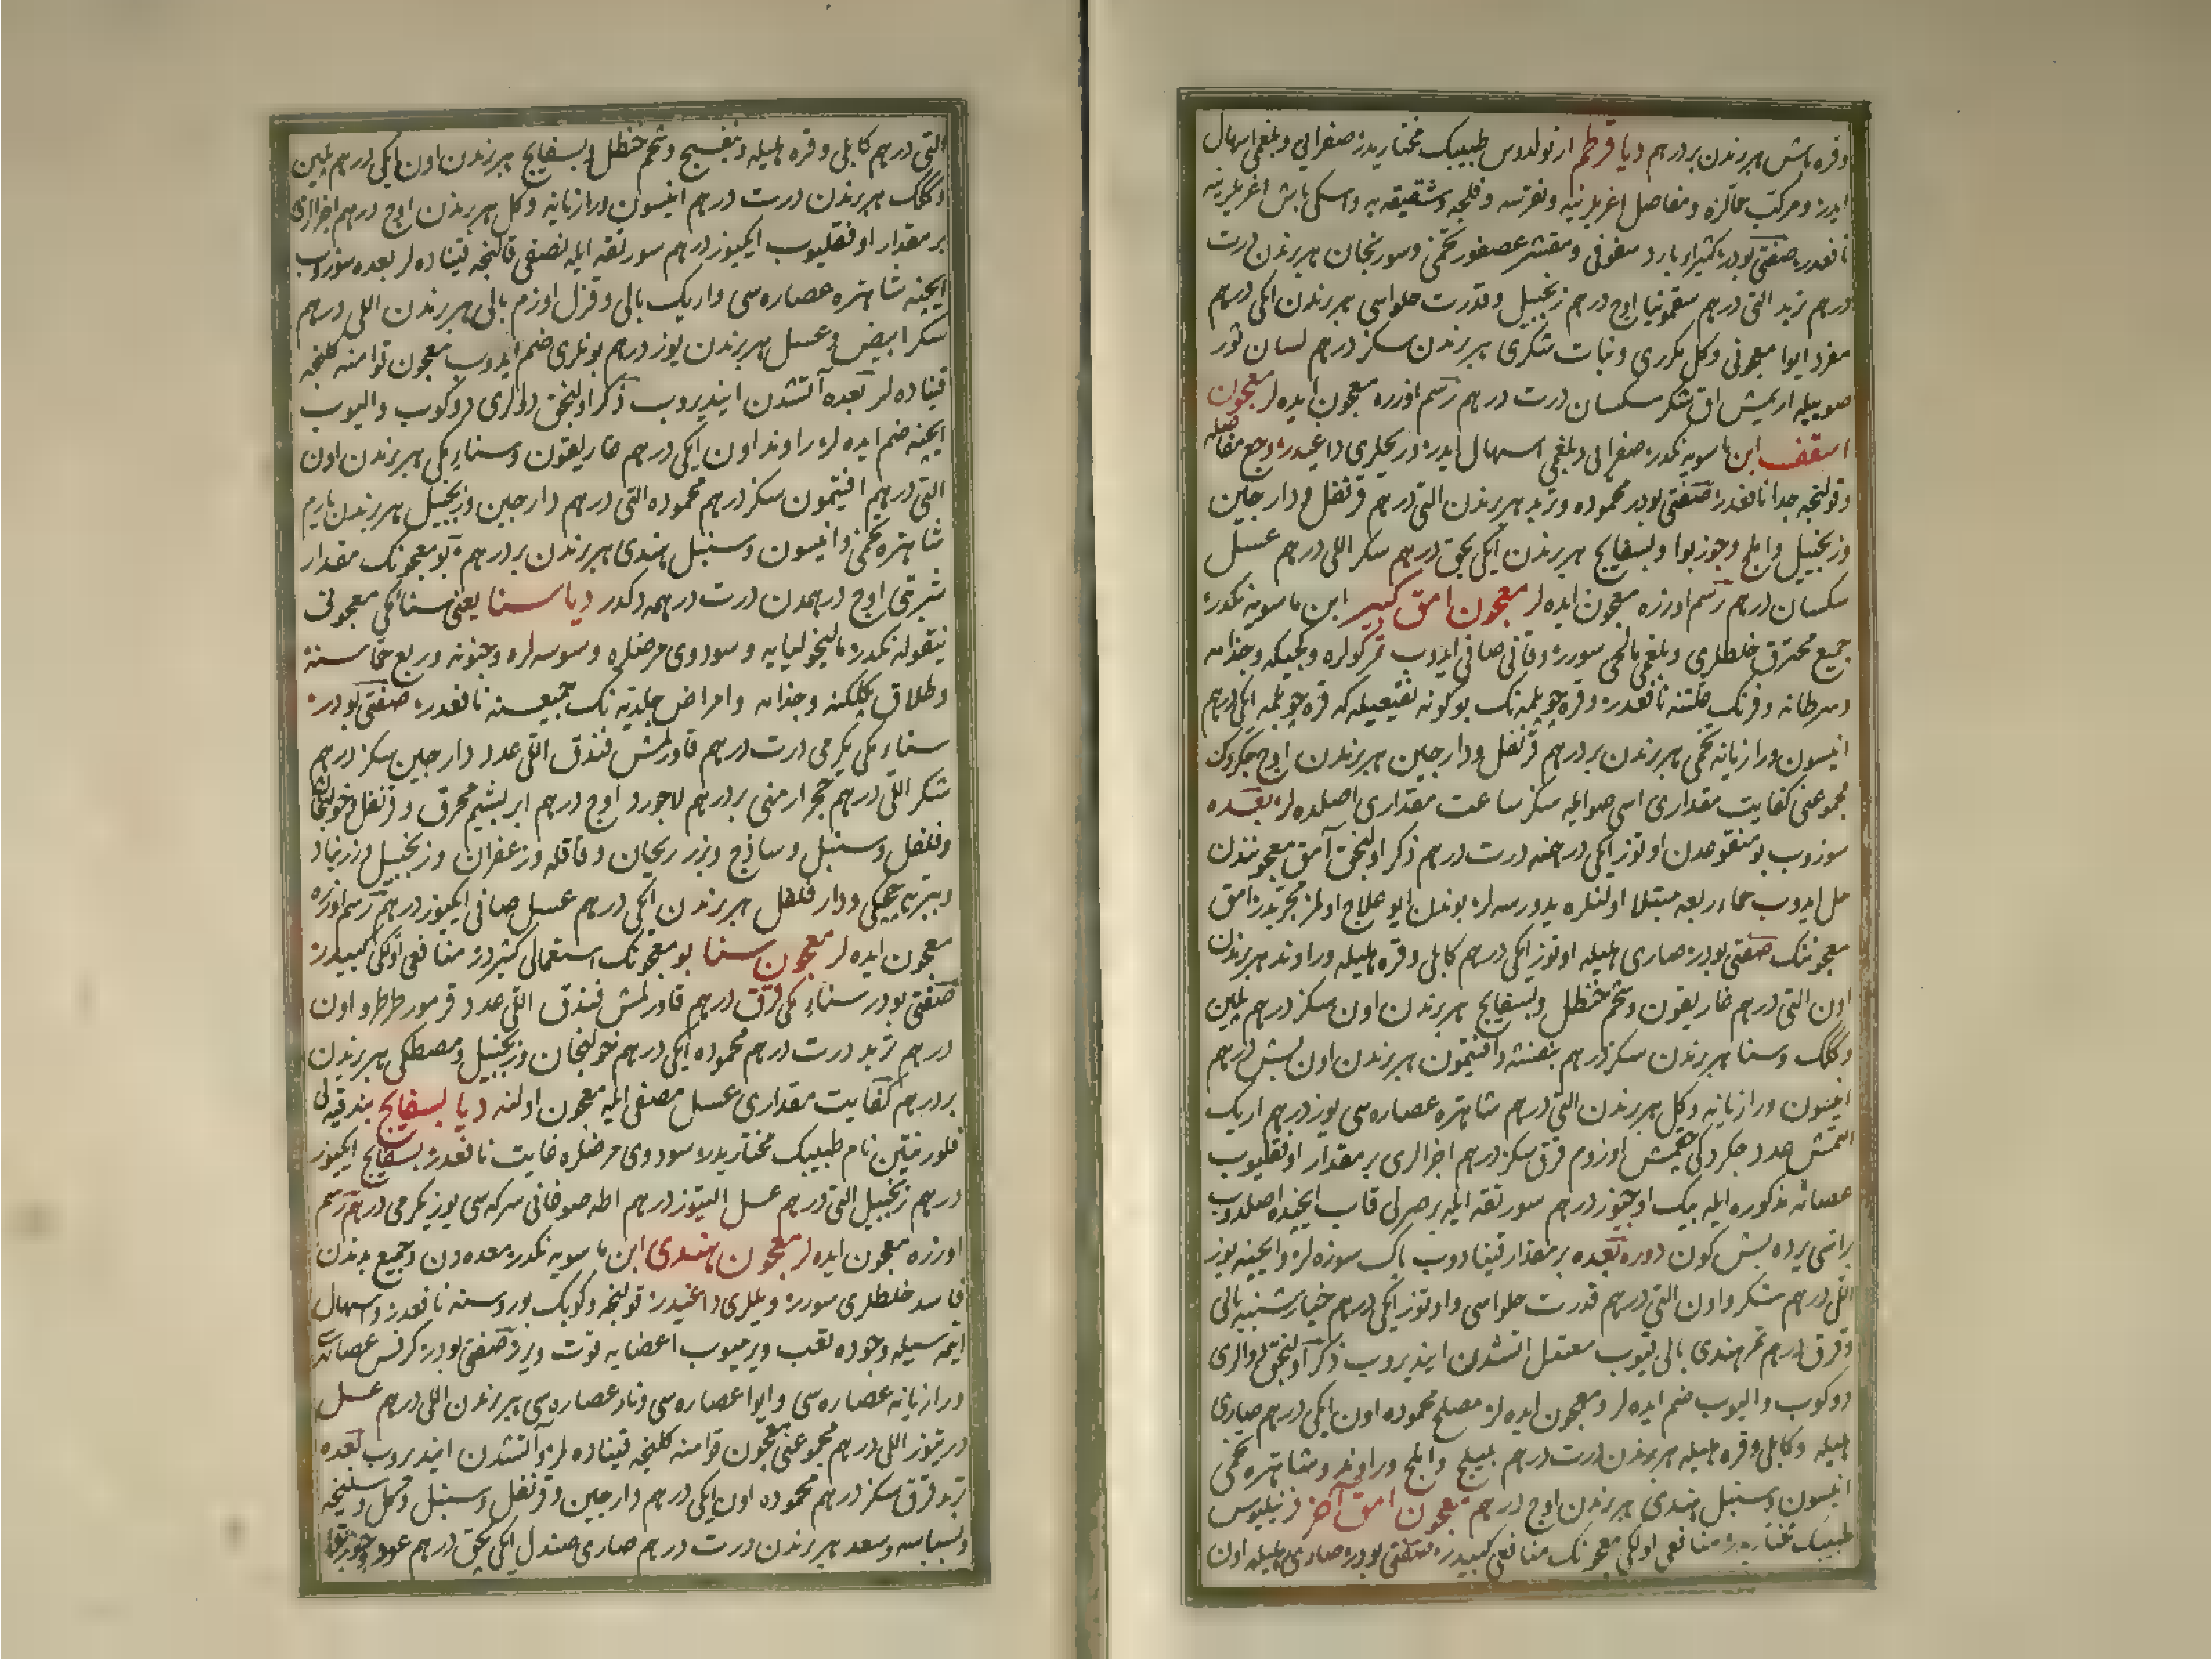 وقره باش هر برندن بر درهم دیا قرطم ارنولدوس طبیبك مختاریدر صفرایی و بلغمی اسهال
ایدر و مرکب حمالره و مفاصل اغریلرینه و نقرسه و فلجه و شقیقه یه و اسکی باش اغریلرینه
نافعدر صنعتی بودر کثیرا و بارد سفوفی و مقشر عصفور تخمی و سورنجان هر برندن درت
درهم تربد التی درهم سقمونیا اوچ درهم زنجبیل و قدرت حلواسی هر برندن ایکی درهم
مفرد ایوا معجونی و کل مکرری و نبات شکری هر برندن سکز درهم لسان ثور
صوییله اریمش اق شکر سکسان درت درهم رسم اوزره معجون ایده لر معجون
اسقف ابن ماسویه نکدر صفرایی و بلغمی اسهال ایدر و ریحلری داغیدر و جع مفاصله
و قولنجه جدا نافعدر صنعتی بودر محموده و تربد هر برندن التی درهم قرنفل و دارچین
و زنجبیل و املج و جوز بوا و بسفایج هر برندن ایکی بچق درهم سکر اللی درهم عسل
سکسان درهم رسم اوزره معجون ایده لر معجون امق کبیر ابن ماسویه نکدر
جمیع محترق خلطلری و بلغمی مالحی سورر و قانی صافی ایدوب تمرکولره و کجیکه و جذامه
و سرطانه و فرنك علتنه نافعدر و قره چوپلمه نك بوکونه نقیعیله که قره چوپلمه ایکی درهم
انیسون و رازیانه تخمی هر برندن بر درهم قرنفل و دارچین هر برندن اوچ چکردك
مجموعنی کفایت مقداری اسی صوایله سکز ساعت مقداری اصلده لر بعده
سوزوب بو منقوعدن اوتوز ایکی درهمنه درت درهم ذکر اولنجق امق معجونندن
حل ایدوب حماء ربعه مبتلا اولنلره یدورسه لر بوندن ایو علاج اولمز مجربدر امق
معجوننك صنعتی بودر صاری هلیله اوتوز ایکی درهم کابلی و قره هلیله و راوند هر برندن
اون التی درهم غاریقون و شحم حنظل و بسفایج هر برندن اون سکز درهم بلین
و ککك و سنا هر برندن سکز درهم بنفشه و افتیمون هر برندن اون بش درهم
انیسون و رازیانه و کل هر برندن التی درهم شاهتره عصاره سی یوز درهم اریك
التمش عدد چکردکی چیقمش اوزوم قرق سکز درهم اجزالری بر مقدار اوفقلیوب
عصاره مذکوره ایله بیك اوچیوز درهم سورنقه ایله بر صرلی قاب ایچنده اصلدوب
براسی یرده بش کون دوره بعده بر مقدار قینادوب پاك سوزه لر و ایچنه یوز
اللی درهم شکر و اون التی درهم قدرت حلواسی و اوتوز ایکی درهم خیارشنبه بالی
و قرق درهم تمر هندی بالی قیوب معتدل اتشدن ایندیروب ذکر اولنجق دوالری
دوکوب و الیوب ضم ایده لر و معجون ایده لر مصلح محموده اون ایکی درهم صاری
هلیله و کابلی و قره هلیله هر برندن درت درهم بلیلج و املج و راوند و شاهتره تخمی
انیسون و سنبل هندی هر برندن اوچ درهم معجون امق آخر فرنیلیوس
طبیبك مختاریدر منافعی اولکی معجونك منافعی کبیدر صنعتی بودر صاری هلیله اون
التی درهم کابلی و قره هلیله و بنفسج و شحم حنظل و بسفایج هر برندن اون ایکی درهم بلین
و ککك هر برندن درت درهم انیسون و رازیانه و کل هر برندن اوچ درهم اجزالری
بر مقدار اوفقلیوب ایکیوز درهم سورنقه ایله نصفی قالنجه قیناده لر بعده سوزوب
ایچنه شاهتره عصاره سی و اریك بالی و قزل اوزم بالی هر برندن اللی درهم
سکر ابیض و عسل هر برندن یوز درهم بونلری ضم ایدوب معجون قوامنه کلنجه
قیناده لر بعده آتشدن ایندیروب ذکر اولنجق دوالری دوکوب و الیوب
ایچنه ضم ایده لر راوند اون ایکی درهم غاریقون و سناء مکی هر برندن اون
التی درهم افتیمون سکز درهم محموده التی درهم دارچین و زنجبیل هر برندن یارم
شاهتره تخمی و انیسون و سنبل هندی هر برندن بر درهم بو معجونك مقدار
شربتی اوچ درهمدن درت درهمه دکدر دیا سنا یعنی سنا مکی معجونی
نیقوله نکدر مالیخولیایه و سودوی مرضلره و وسوسه لره و جنونه و ربع حماسنه
و طلاق کلکنه و جذامه و امراض جلدیه نك جمیعسنه نافعدر صنعتی بودر
سناء مکی یکرمی درت درهم قاورلمش فندق اللی عدد دارچین سکز درهم
شکر اللی درهم حجر ارمنی بر درهم لاجورد اوچ درهم ابریشیم محرق و قرنفل و خولنجان
و فلفل و سنبل و ساذج و بزر ریحان و قاقله و زعفران و زنجبیل و زرنباد
و بیبریه چیچکی و دار فلفل هر برندن ایکی درهم عسل صافی ایکیوز درهم رسم اوزره
معجون ایده لر معجون سنا بو معجونك استعمالی کثیردر منافعی اولکی کبیدر
صنعتی بودر سناء مکی قرق درهم قاورلمش فندق اللی عدد قرمور طرطرو اون
درهم تربد درت درهم محموده ایکی درهم خولنجان و زنجبیل و مصطکی هر برندن
بر درهم کفایت مقداری عسل مصفی ایله معجون اولنه دیا بسفایج بندقیه لی
فلورنتین نام طبیبك مختاریدر سودوی مرضلره غایت نافعدر بسفایج ایکیوز
درهم زنجبیل التی درهم عسل التیوز درهم اطه صوغانی سرکه سی یوز یکرمی درهم رسم
اوزره معجون ایده لر معجون هندی ابن ماسویه نکدر معده دن و جمیع بدندن
فاسد خلطلری سورر و یللری داغیدر قولنجه و کوبك بوروسنه نافعدر و اسهال
ایتمه سیله وجوده تعب ویرمیوب اعضایه قوت ویرر صنعتی بودر کرفس عصاره سی
و رازیانه عصاره سی و ایوا عصاره سی و نار عصاره سی هر برندن اللی درهم عسل
درتیوز اللی درهم مجموعنی معجون قوامنه کلنجه قیناده لر و آتشدن ایندیروب بعده
تربد قرق سکز درهم محموده اون ایکی درهم دارچین و قرنفل و سنبل و کل و سلیخه
و بسباسه و سعد هر برندن درت درهم صاری صندل ایکی بچق درهم عود و جوز بوا